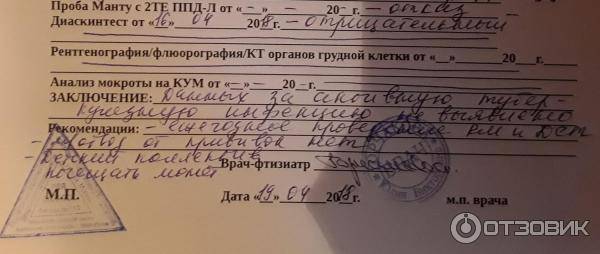 Проба Манту с 2ТЕ ППД-Л от «–» – 20 – г. – отказ
Диаскинтест от «16» 04 2018г. – отрицательный
Рентгенография/флюорография/КТ органов грудной клетки от «__» 20 г.
Анализ мокроты на КУМ от «–» – 20 – г.
ЗАКЛЮЧЕНИЕ: Данных за активную тубер-
кулезную инфекцию не выявлено
Рекомендации: – ежегодное проведение РМ и ДСТ
– отвод от прививок нет
– детский коллектив
посещать может
Врач-фтизиатр
Дата «19» 04 2018г.
М.П.
м.п. врача
ОТЗОВИК